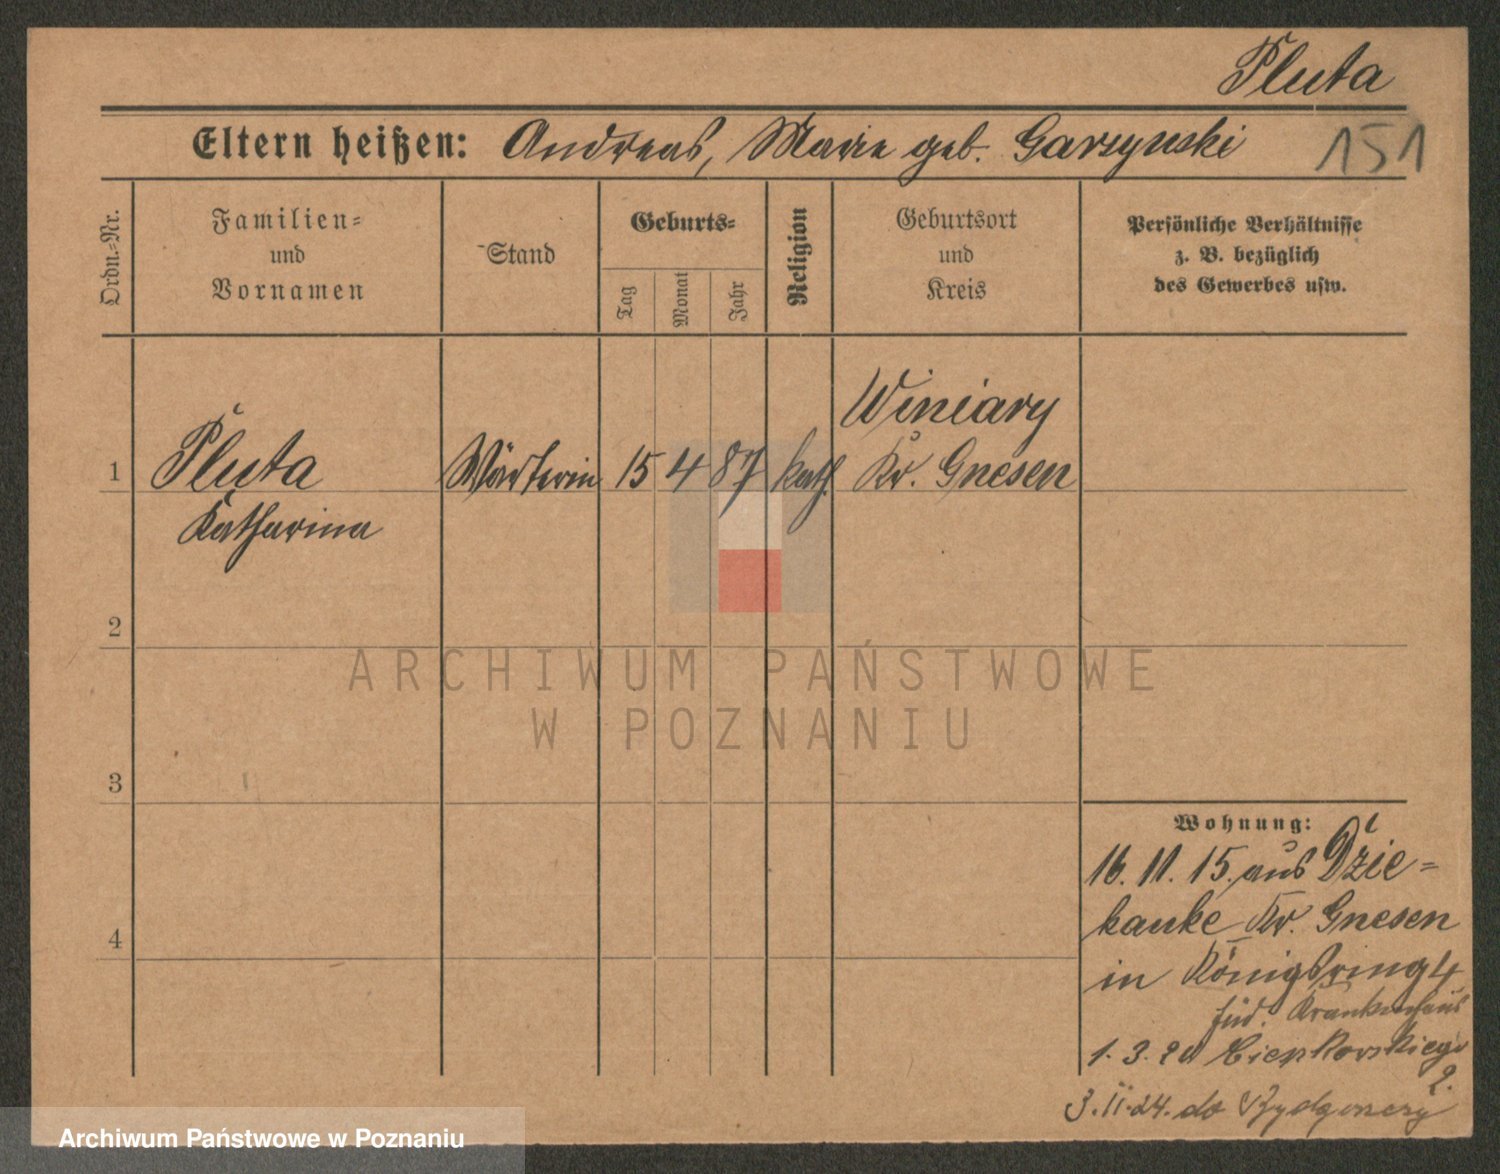 Pluta
Eltern heißen: Andreas, Marie geb. Garzynski
151
Ordn.-Nr.
Familien-
und
Vornamen
Stand
Geburts-
Tag
Monat
Jahr
Religion
Geburtsort
und
Kreis
Persönliche Verhältnisse
z. B. bezüglich
des Gewerbes usw.
1
Pluta
Katharina
Wärterin
15 4 87
kath.
Winiary
Kr. Gnesen
2
3
4
ARCHIWUM PAŃSTWOWE
W POZNANIU
Wohnung:
16. 11. 15. aus Dzie-
kanke Kr. Gnesen
in Königsring 4
jüd. Krankenhaus
1. 3. 20
2.
3.II.24. do Bydgoszczy
Archiwum Państwowe w Poznaniu